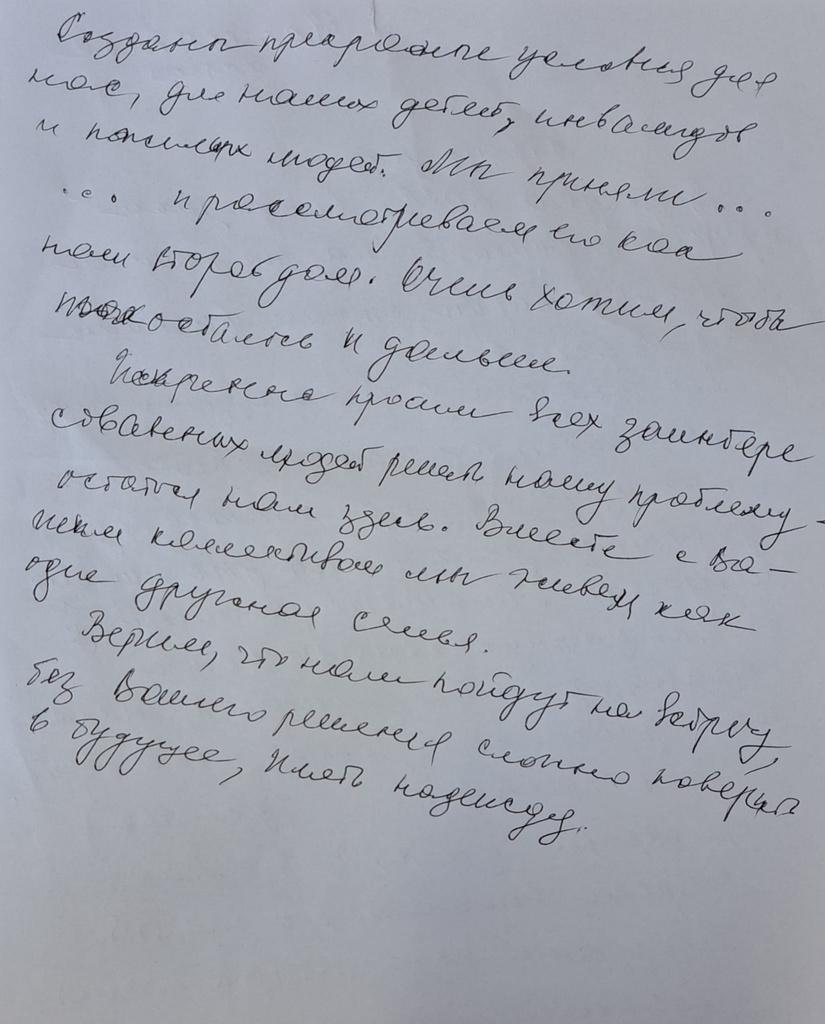 Созданы прекрасные условия для
нас, для наших детей, инвалидов
и пожилых людей. Мы приняли ...
... и рассматриваем его как
наш второй дом. Очень хотим, чтобы
осталось и дальше.
Искренне просим всех заинтере
сованных людей решить нашу проблему -
остаться нам здесь. Вместе с Ва-
шим коллективом мы живем как
одна дружная семья.
Верим, что нам пойдут на встречу,
без Вашего решения сложно поверить
в будущее, иметь надежду.